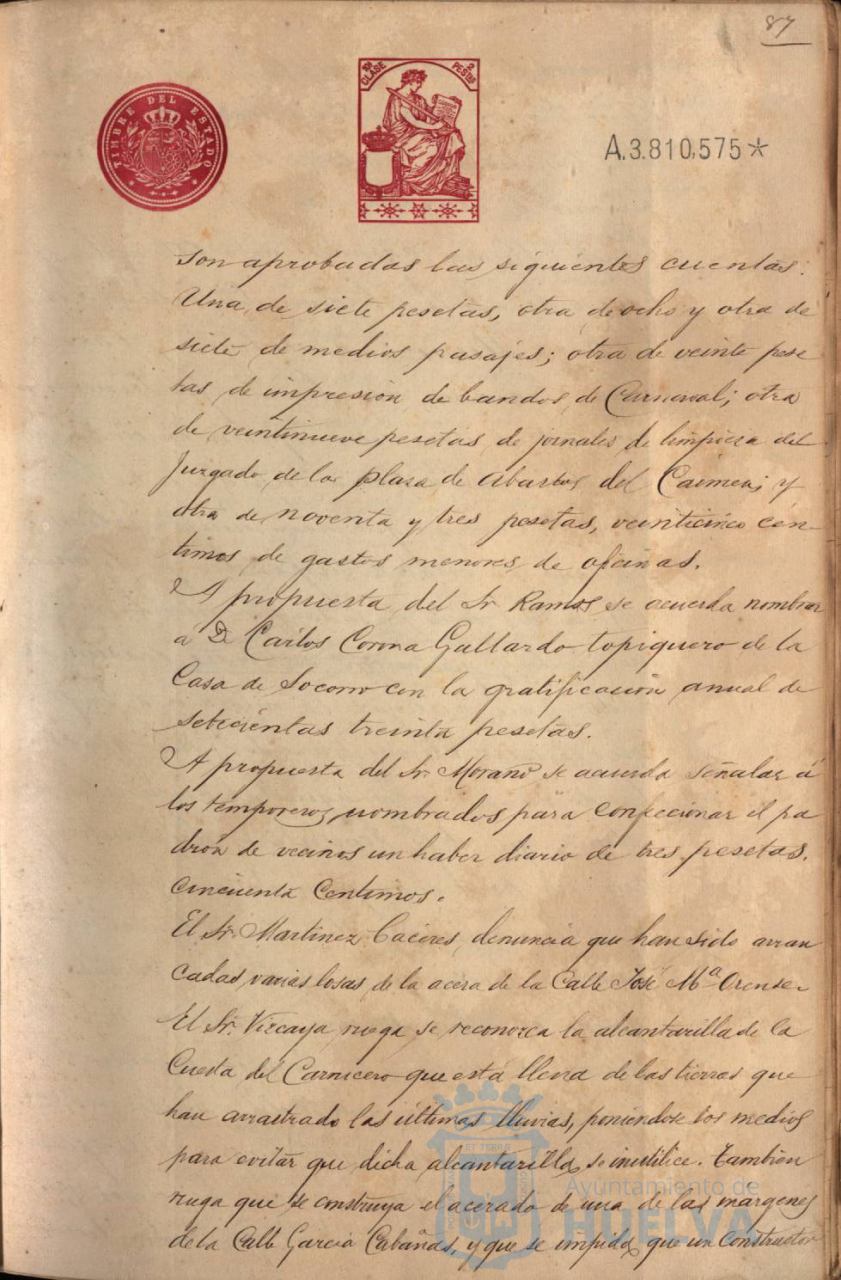 87
TIMBRE DEL ESTADO
10ª CLASE 2 PESTAS
A.3.810,575*
son aprobadas las siguientes cuentas:
Una de siete pesetas, otra de ocho y otra de
siete de medios pasajes; otra de veinte pese
tas de impresión de bandos de Carnaval; otra
de veintinueve pesetas de jornales de limpieza del
Juzgado de la plaza de Abastos del Carmen; y
otra de noventa y tres pesetas, veinticinco cén-
timos de gastos menores de oficinas.
A propuesta del Sr Ramos se acuerda nombrar
á D. Carlos Corona Gallardo topiquero de la
Casa de Socorro con la gratificación anual de
setecientas treinta pesetas.
A propuesta del Sr. Moraño se acuerda señalar á
los temporeros nombrados para confeccionar el pa
drón de vecinos un haber diario de tres pesetas.
cincuenta centimos.
El Sr. Martinez Caceres, denuncia que han sido arran
cadas varias losas de la acera de la Calle José Mª Orense.
El Sr. Vizcaya ruega se reconozca la alcantarilla de la
Cuesta del Carnicero que está llena de las tierras que
han arrastrado las últimas lluvias, poniendose los medios
para evitar que dicha alcantarilla se inutilice. Tambien
ruega que se construya el acerado de una de las margenes
de la Calle Garcia Cabañas, y que se impida que un constructor
Ayuntamiento de
HUELVA